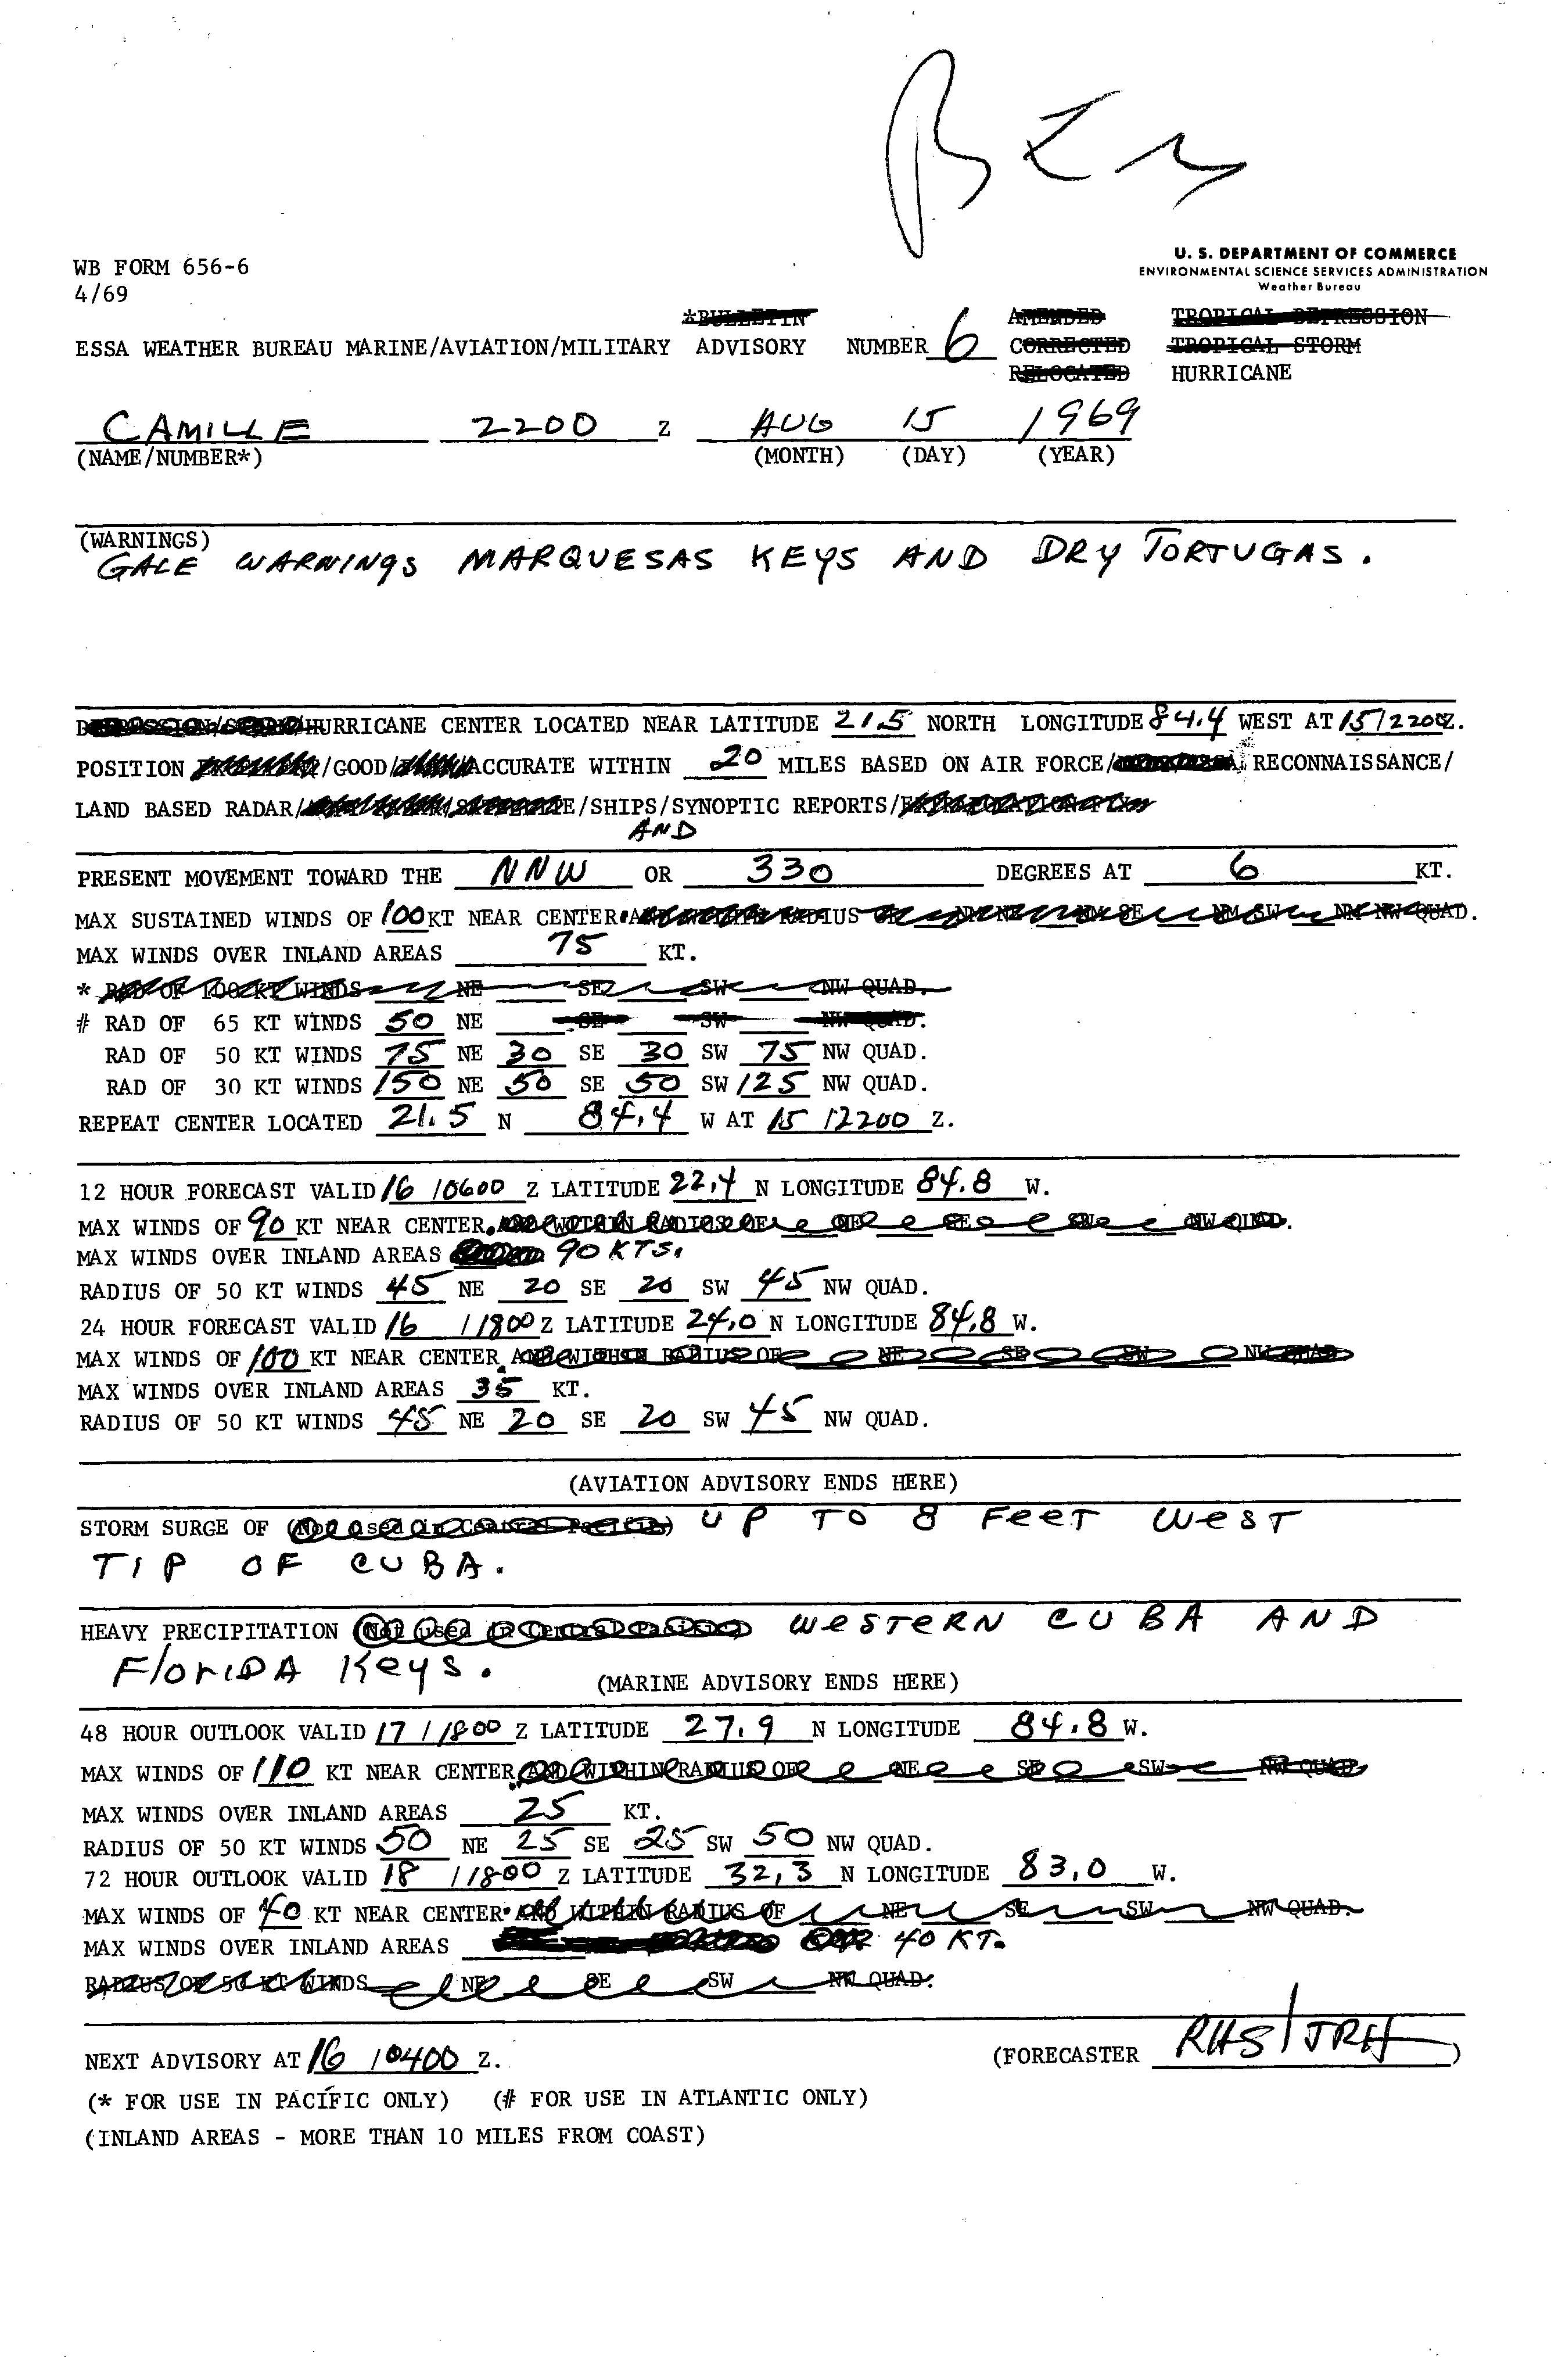 U. S. DEPARTMENT OF COMMERCE
ENVIRONMENTAL SCIENCE SERVICES ADMINISTRATION
Weather Bureau
WB FORM 656-6
4/69
*BULLETIN AMENDED TROPICAL DEPRESSION
ESSA WEATHER BUREAU MARINE/AVIATION/MILITARY ADVISORY NUMBER 6 CORRECTED TROPICAL STORM
RELOCATED HURRICANE
CAMILLE 2200 Z AUG 15 1969
(NAME/NUMBER*) (MONTH) (DAY) (YEAR)
(WARNINGS)
GALE WARNINGS MARQUESAS KEYS AND DRY TORTUGAS.
HURRICANE CENTER LOCATED NEAR LATITUDE 21.5 NORTH LONGITUDE 84.4 WEST AT 15/2200Z.
POSITION /GOOD/ ACCURATE WITHIN 20 MILES BASED ON AIR FORCE/ RECONNAISSANCE/
LAND BASED RADAR/ /SHIPS/SYNOPTIC REPORTS/
AND
PRESENT MOVEMENT TOWARD THE NNW OR 330 DEGREES AT 6 KT.
MAX SUSTAINED WINDS OF 100 KT NEAR CENTER.
MAX WINDS OVER INLAND AREAS 75 KT.
* RAD OF 100 KT WINDS NE SE SW NW QUAD.
# RAD OF 65 KT WINDS 50 NE SE SW NW QUAD.
RAD OF 50 KT WINDS 75 NE 30 SE 30 SW 75 NW QUAD.
RAD OF 30 KT WINDS 150 NE 50 SE 50 SW 125 NW QUAD.
REPEAT CENTER LOCATED 21.5 N 84.4 W AT 15/2200 Z.
12 HOUR FORECAST VALID 16/0600 Z LATITUDE 22.4 N LONGITUDE 84.8 W.
MAX WINDS OF 90 KT NEAR CENTER.
MAX WINDS OVER INLAND AREAS 90 KTS.
RADIUS OF 50 KT WINDS 45 NE 20 SE 20 SW 45 NW QUAD.
24 HOUR FORECAST VALID 16/1800 Z LATITUDE 24.0 N LONGITUDE 84.8 W.
MAX WINDS OF 100 KT NEAR CENTER.
MAX WINDS OVER INLAND AREAS 35 KT.
RADIUS OF 50 KT WINDS 45 NE 20 SE 20 SW 45 NW QUAD.
(AVIATION ADVISORY ENDS HERE)
STORM SURGE OF (Not used in Central Pacific) UP TO 8 FEET WEST
TIP OF CUBA.
HEAVY PRECIPITATION (Not used in Central Pacific) WESTERN CUBA AND
FLORIDA KEYS.
(MARINE ADVISORY ENDS HERE)
48 HOUR OUTLOOK VALID 17/1800 Z LATITUDE 27.9 N LONGITUDE 84.8 W.
MAX WINDS OF 110 KT NEAR CENTER.
MAX WINDS OVER INLAND AREAS 25 KT.
RADIUS OF 50 KT WINDS 50 NE 25 SE 25 SW 50 NW QUAD.
72 HOUR OUTLOOK VALID 18/1800 Z LATITUDE 32.3 N LONGITUDE 83.0 W.
MAX WINDS OF 40 KT NEAR CENTER. AND WITHIN RADIUS OF NE SE SW NW QUAD.
MAX WINDS OVER INLAND AREAS 40 KT.
RADIUS OF 50 KT WINDS NE SE SW NW QUAD.
NEXT ADVISORY AT 16/0400 Z. (FORECASTER RHS/JRH)
(* FOR USE IN PACIFIC ONLY) (# FOR USE IN ATLANTIC ONLY)
(INLAND AREAS - MORE THAN 10 MILES FROM COAST)